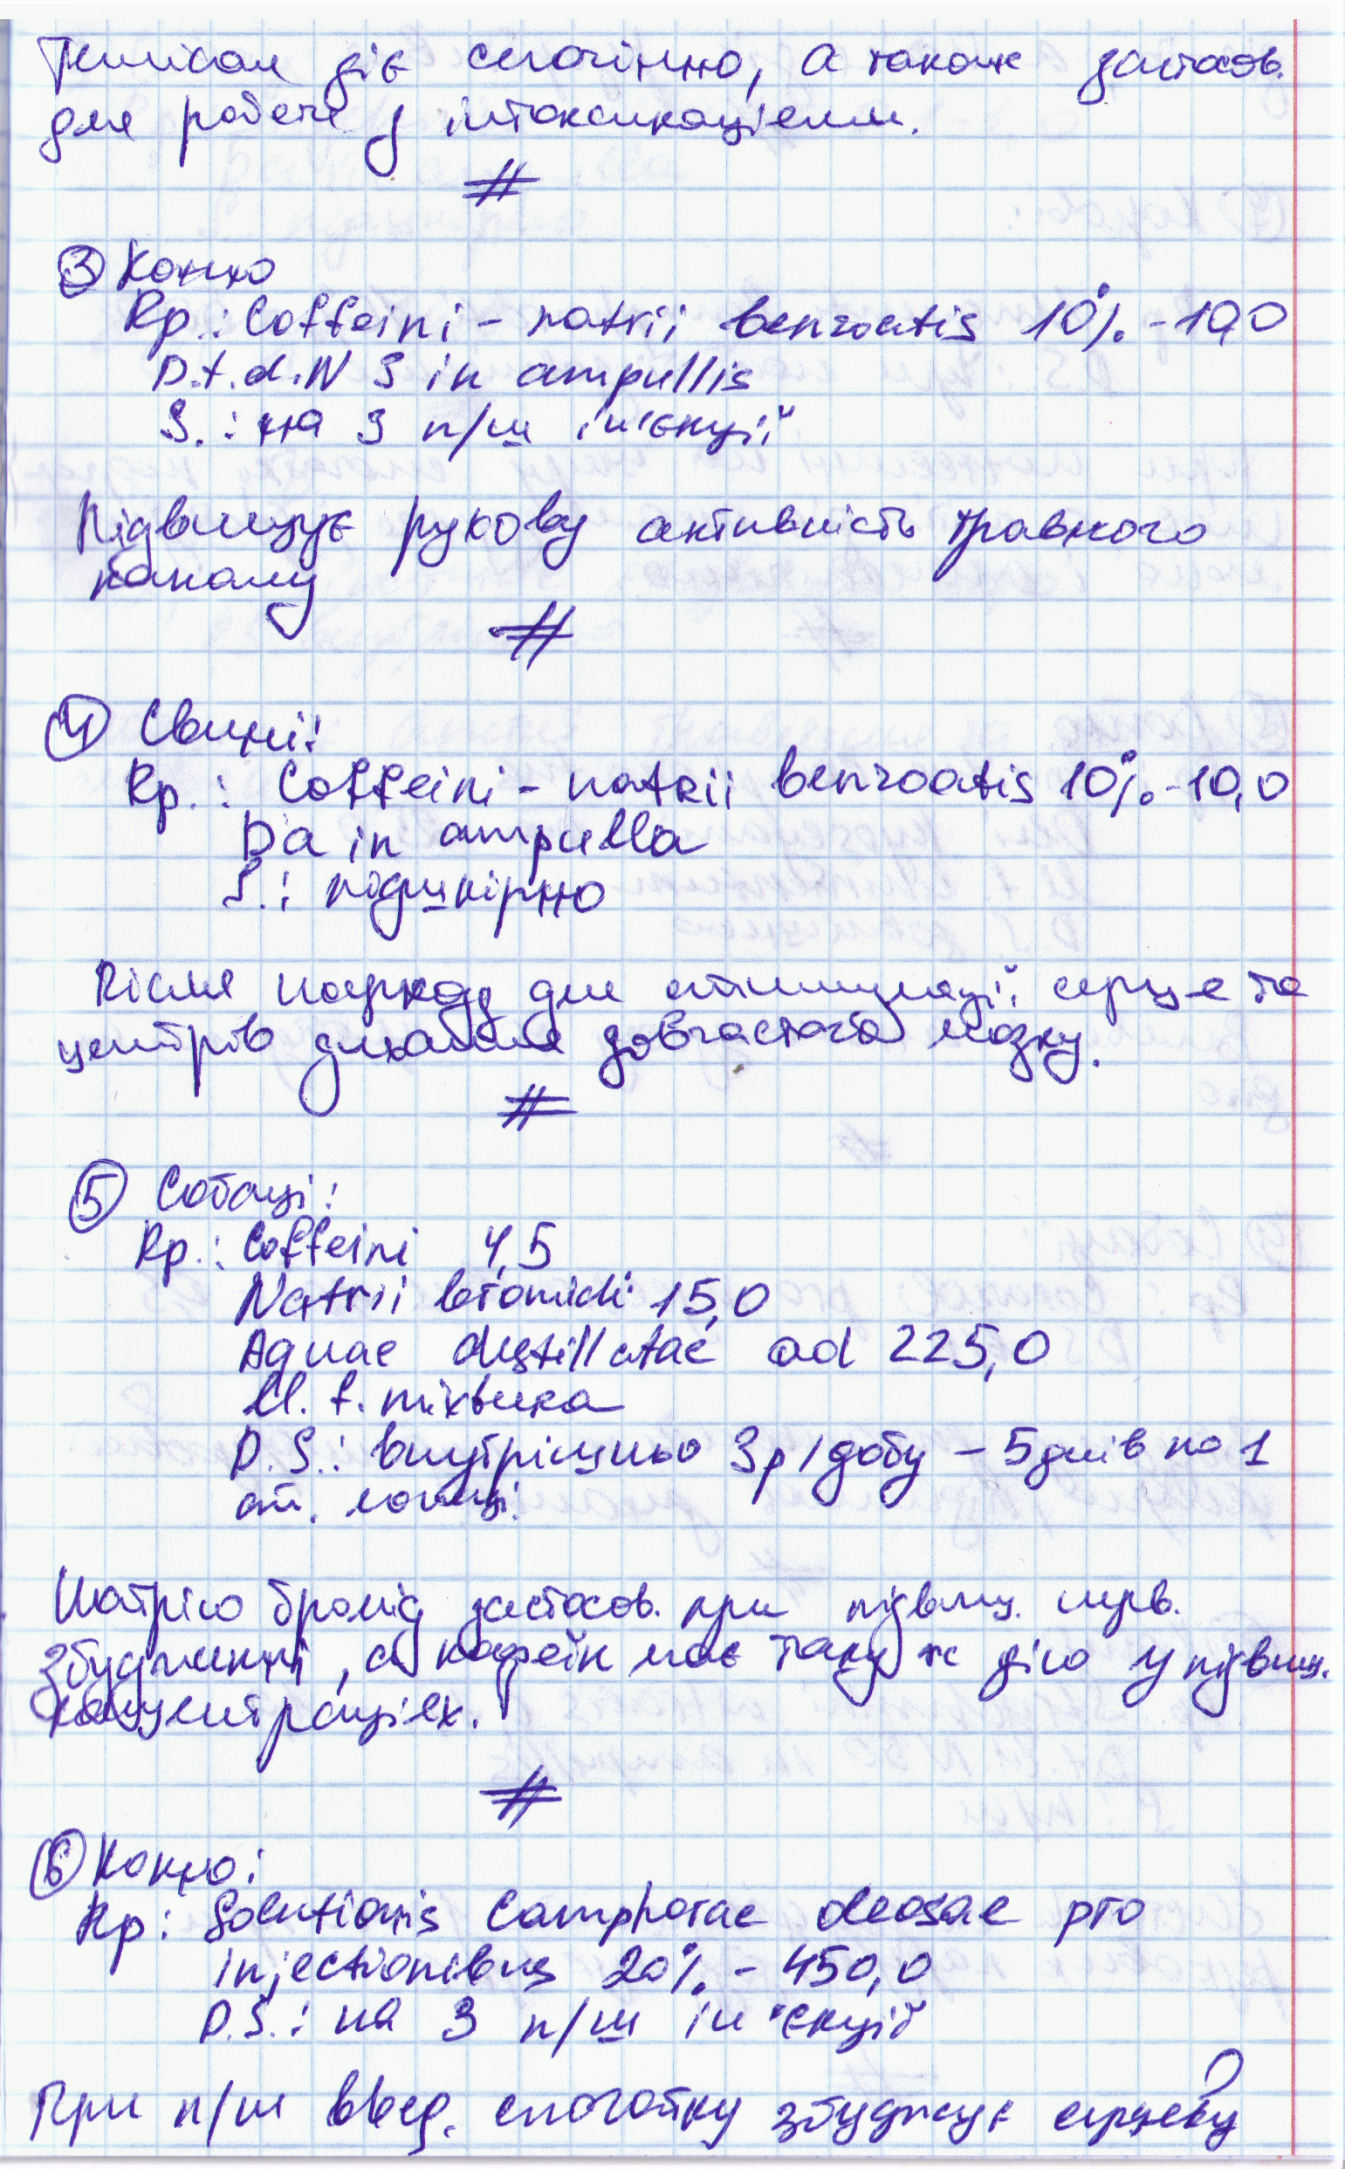 Темісал діє сечогінно, а також застосов.
для роботи з інтоксикацієями.
③ Коню
Rp.: Coffeini - natrii benzoatis 10% - 10,0
D.t.d. N 3 in ampullis
S.: на 3 п/ш ін'єкції
Підвищує рухову активність травного
каналу
④ Свині:
Rp.: Coffeini - natrii benzoatis 10% - 10,0
Da in ampulla
S.: підшкірно
Після наркозу для стимуляції серця та
центрів дихання довгастого мозку.
⑤ Собаці:
Rp.: Coffeini 4,5
Natrii bromidi 15,0
Aquae destillatae ad 225,0
M. f. mixtura
D.S.: внутрішньо 3р/добу - 5 днів по 1
ст. ложці
Натрію бромід застосов. при підвищ. нерв.
збудженні, а кофеїн має таку ж дію у підвищ.
концентраціях.
⑥ Коню:
Rp: Solutionis Camphorae oleosae pro
injectionibus 20% - 450,0
D.S.: на 3 п/ш ін'єкції
При п/ш введ. спочатку збуджує серцеву